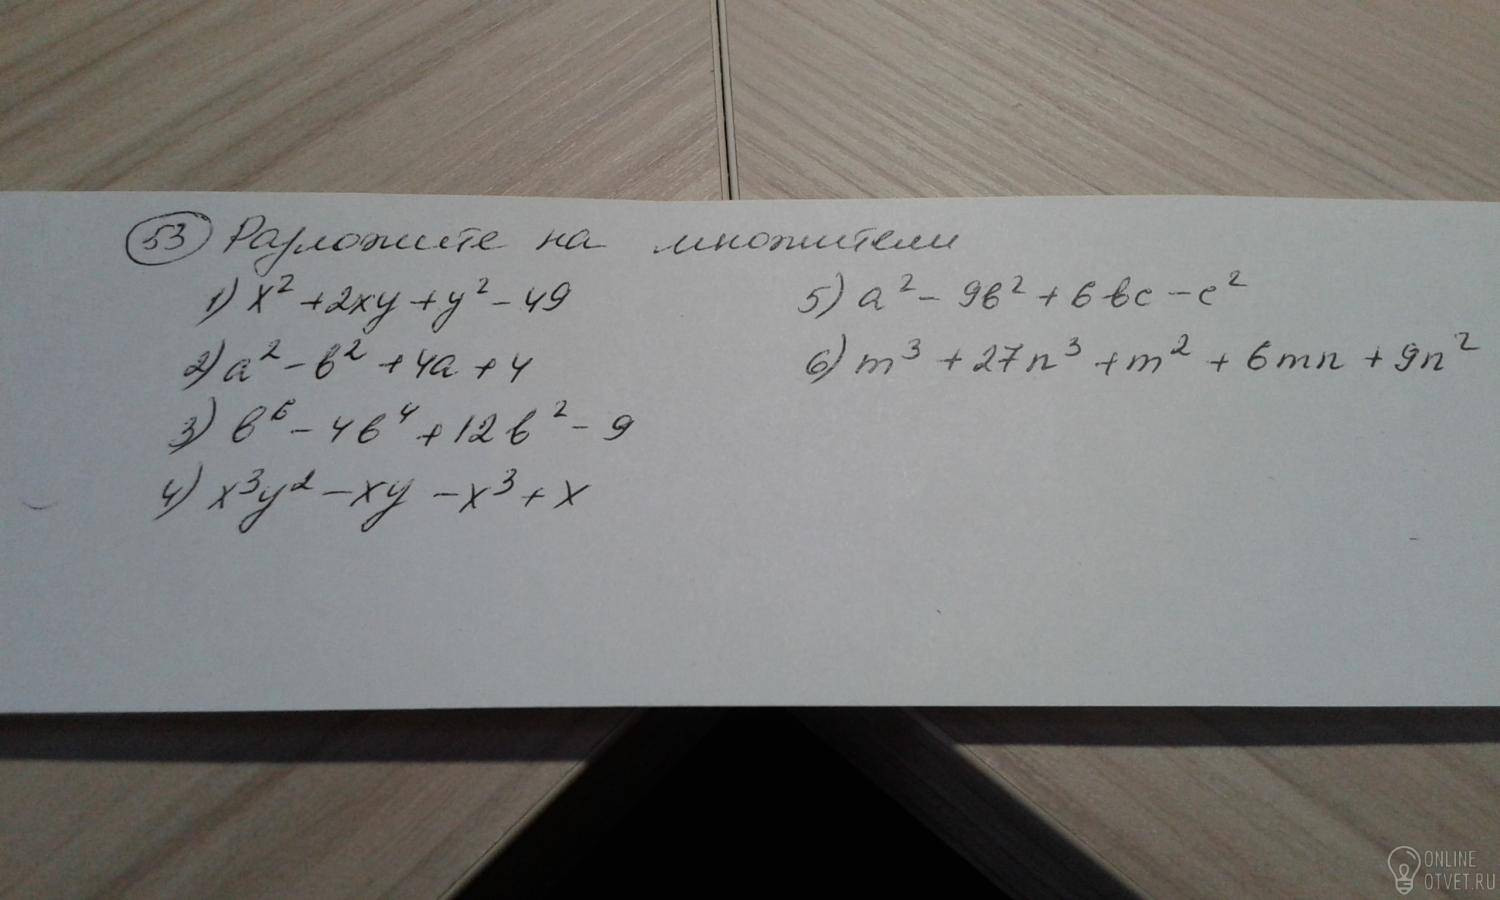 53 Разложите на множители
1) x² + 2xy + y² - 49
2) a² - b² + 4a + 4
3) b⁶ - 4b⁴ + 12b² - 9
4) x³y² - xy - x³ + x
5) a² - 9b² + 6bc - c²
6) m³ + 27n³ + m² + 6mn + 9n²
ONLINE
OTVET.RU